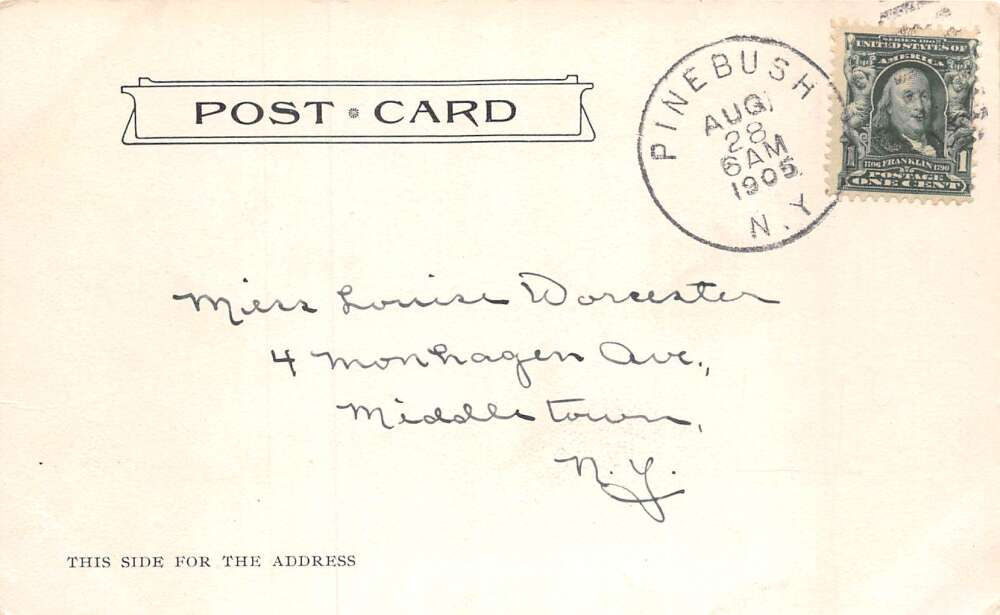 POST CARD
PINEBUSH
AUG
28
6 AM
1905
N.Y
SERIES 1902
UNITED STATES OF
AMERICA
1 1706 FRANKLIN 1790 1
POSTAGE
ONE CENT
Miss Louise Worcester
4 Monhagen Ave.,
Middletown,
N.Y.
THIS SIDE FOR THE ADDRESS